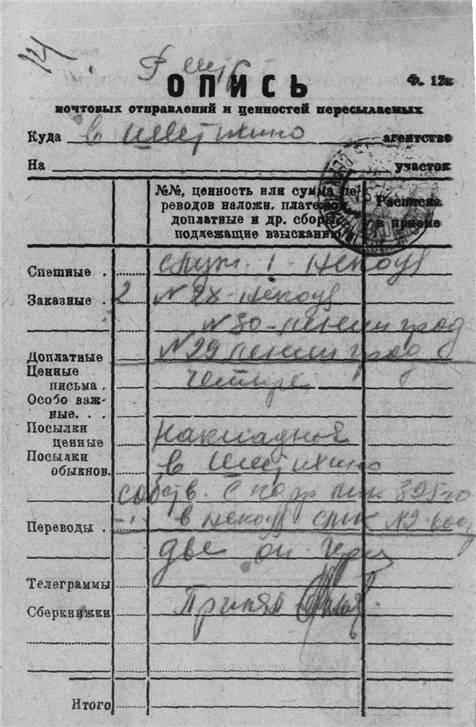 14.
ОПИСЬ
Ф. 12к
почтовых отправлений и ценностей пересылаемых
Куда в Шестихино агентство
На участок
№№, ценность или сумма пе-
реводов наложн. платежей,
доплатные и др. сборы,
подлежащие взысканию
Расписка
в приеме
Спешные . 1 - Некоуз
Заказные . 2 № 28 - Некоуз
№ 30 - Ленинград
Доплатные № 29 Ленинград
Ценные
письма . четыре
Особо важ-
ные. . .
Посылки
ценные накладной
Посылки
обыкнов. в Шестихино
Переводы . -1- в Некоуз №2
две
Телеграммы
Сберкнижки Принял
Итого